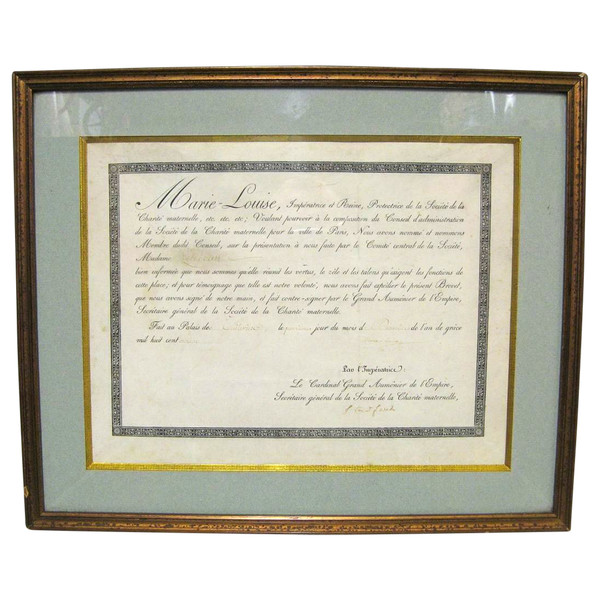 Marie-Louise, Impératrice et Reine, Protectrice de la Société de la
Charité maternelle, etc. etc. etc; Voulant pourvoir à la composition du Conseil d'administration
de la Société de la Charité maternelle pour la ville de Paris, Nous avons nommé et nommons
Membre dudit Conseil, sur la présentation à nous faite par le Comité central de la Société,
Madame
bien informée que nous sommes qu'elle réunit les vertus, le zèle et les talens qu'exigent les fonctions de
cette place; et pour témoignage que telle est notre volonté, nous avons fait expédier le présent Brevet,
que nous avons signé de notre main, et fait contre-signer par le Grand Aumônier de l'Empire,
Secrétaire général de la Société de la Charité maternelle.
Fait au Palais de le jour du mois d de l'an de grâce
mil huit cent
Par l'Impératrice:
Le Cardinal Grand Aumônier de l'Empire,
Secrétaire général de la Société de la Charité maternelle,